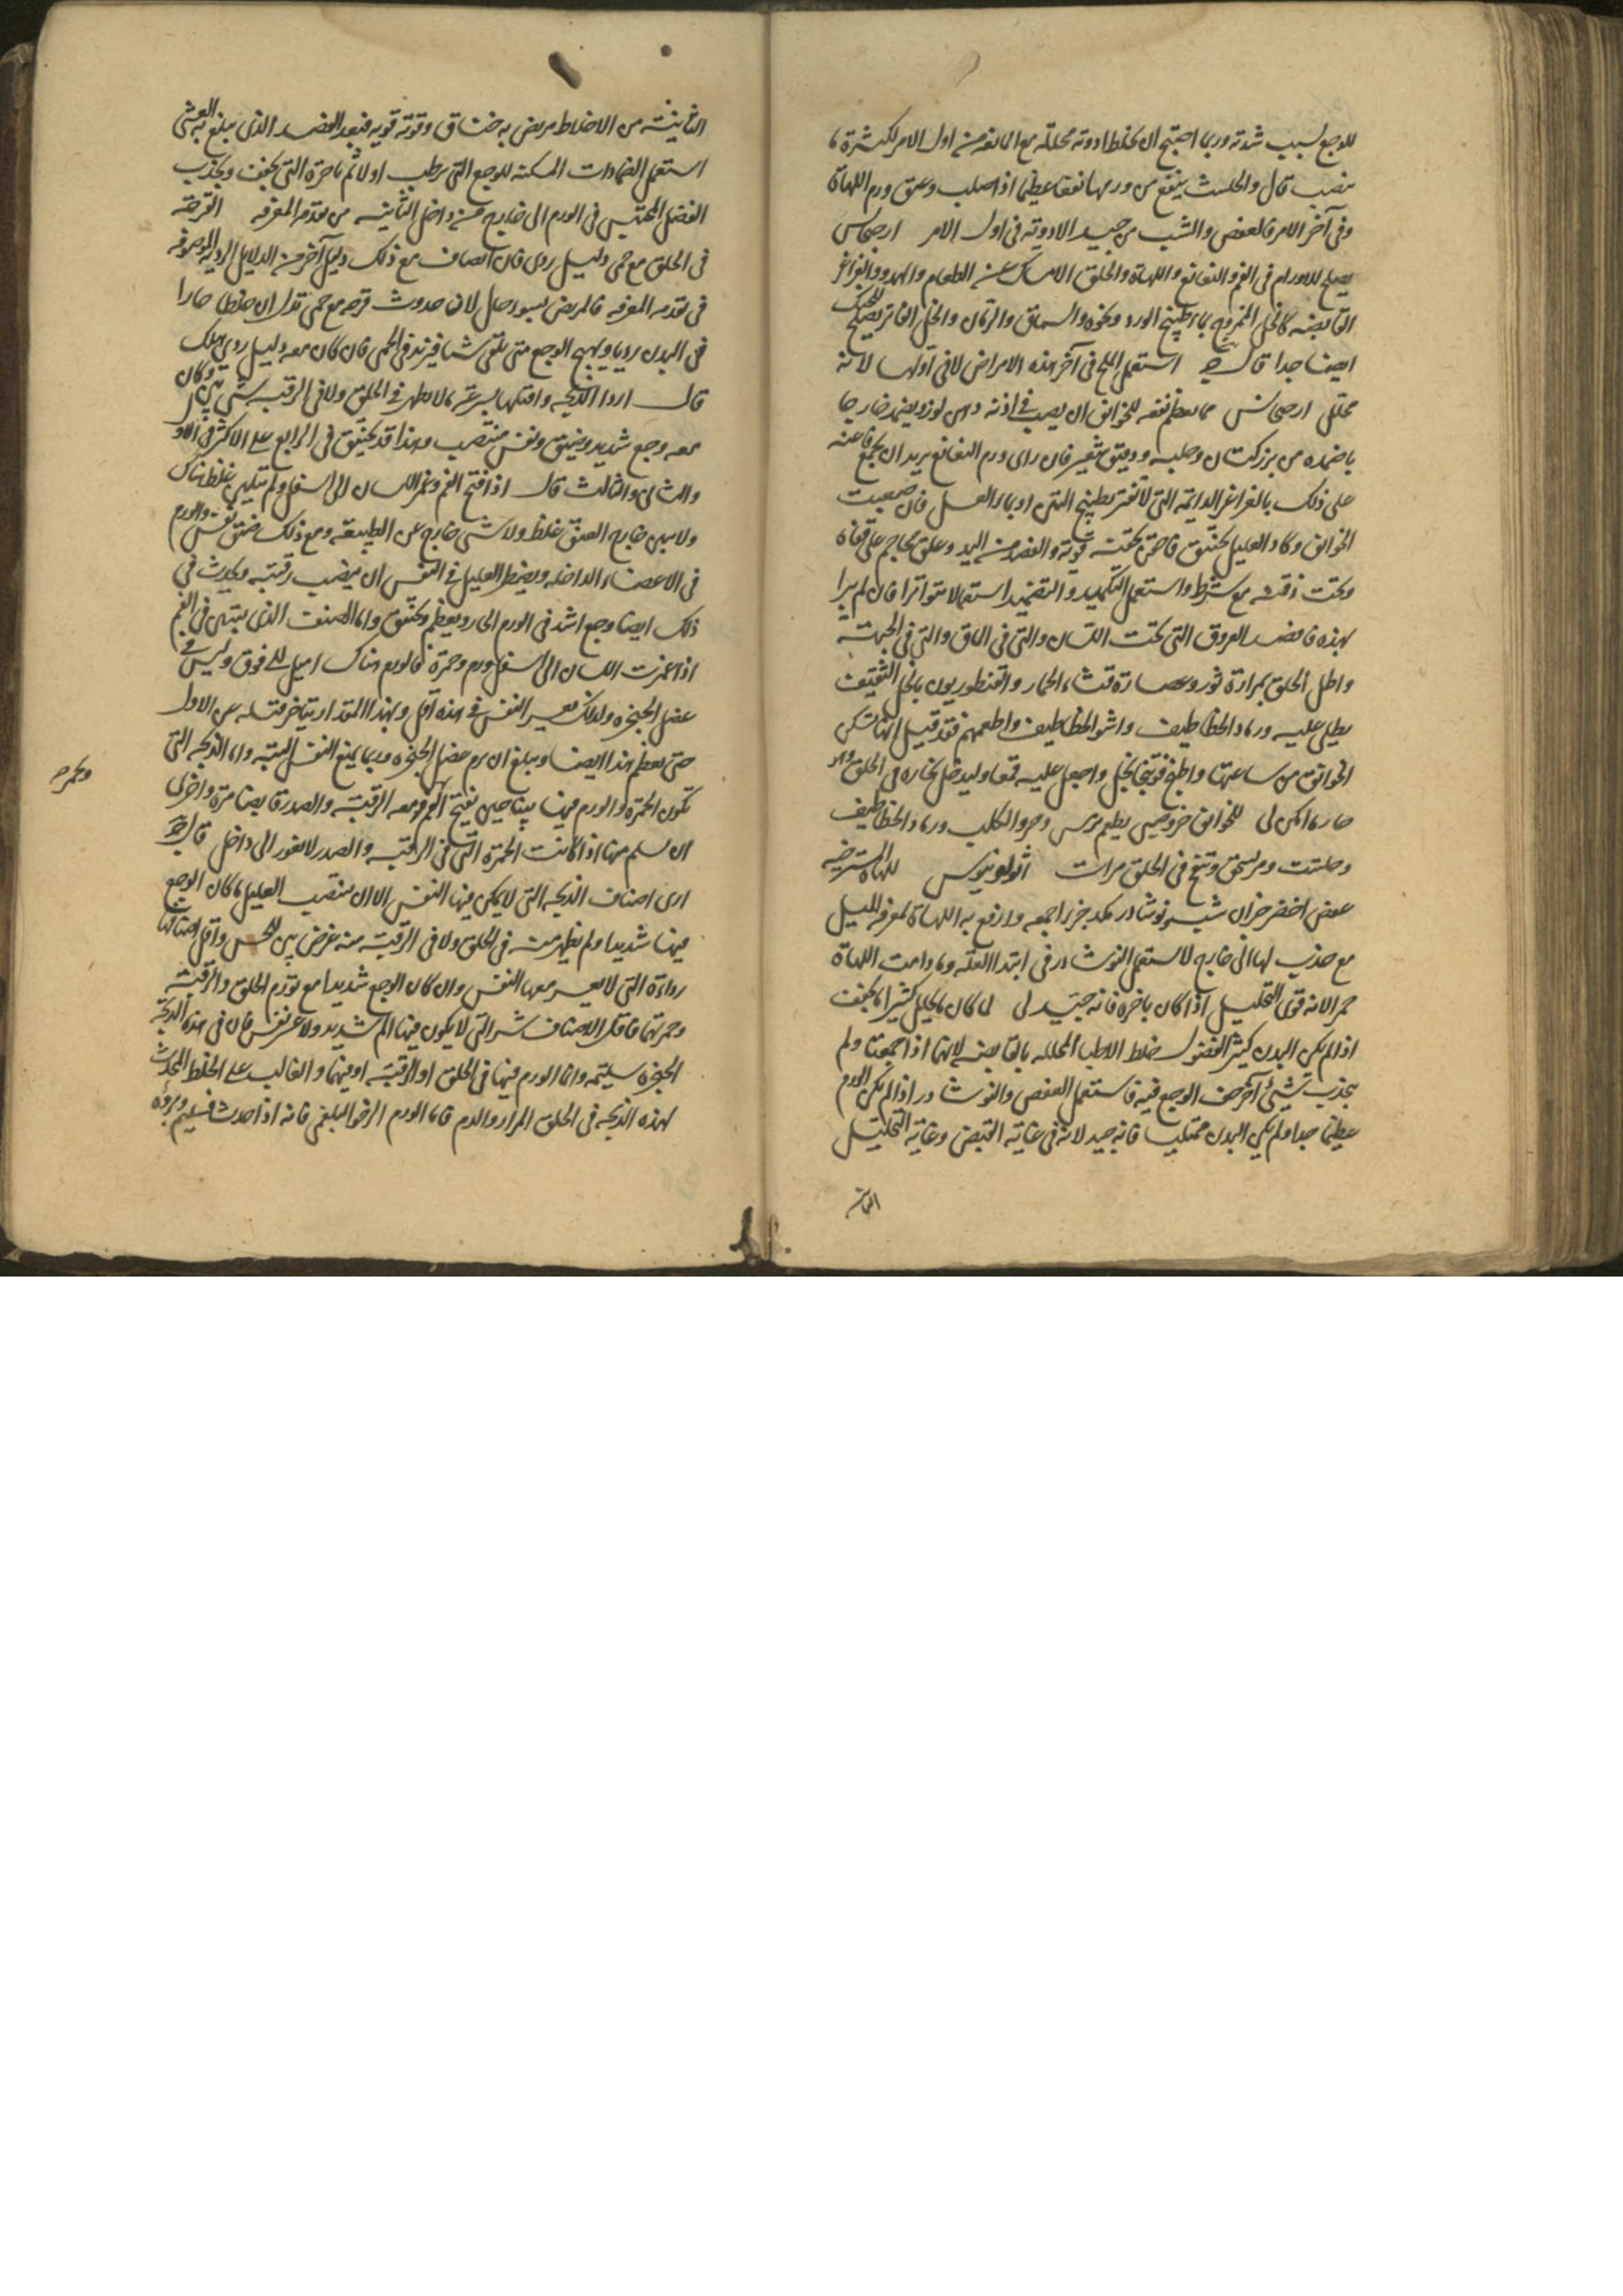 للوجع لسبب شدته وربما احتيج ان يخلط ادوية محللة مع المانعة من اول الامر لكثرة ما
ينصب قال والحلتيت ينفع من ورمها نفعا عظيما اذا صلب وعتق ورم اللهاة
وفى آخر الامر فالعفص والشب من جيد الادوية فى اول الامر ارجحانس
يصلح للاورام فى الفم والنغانغ واللهاة والحلق الامساك عن الطعام والهدو والغراغر
القابضة كالخل الممزوج بما طبيخ الورد ونحوه والسماق والرمان والخل الفاتر يصلح للحنك
ايضا جدا قال ج استعمل الملح فى آخر هذه الامراض لا فى اولها لانه
محلل ارجحانس مما يعظم نفعه للخوانق ان يصب فى اذنه دهن لوز ويضمد خارجا
باضمدة من بزر كتان وحلبة ودقيق شعير فان راى ورم النغانغ يريد ان يجمع فاعنه
على ذلك بالغراغر الدايمة التى لا تفتر بطبيخ التين او بماء العسل فان صعبت
الخوانق وكاد العليل يختنق فاحقن بحقنة قوية والفصد من اليد وعلق محاجم على قفاه
وتحت ذقنه مع شرط واستعمل التكميد والتضميد استعمالا متواترا فان لم يبرا
بهذه فافصد العروق التى تحت اللسان والتى فى الماق والتى فى الجبهة
واطل الحلق بمرارة ثور وعصارة قثاء الحمار والقنطوريون بالخل الثقيف
يطلى عليه ورماد الخطاطيف واشو الخطاطيف واطعمهم فقد قيل انها تسكن
الخوانق من ساعتها واطبخ فوتنجا بخل واجعل عليه قمعا وليدخل بخاره فى الحلق وهو
حار ما امكن لى للخوانق خرؤ صبى يطعم ترمس وخرو الكلب ورماد الخطاطيف
وحلتيت ومر يسحق وينفخ فى الحلق مرات اثولوسوس للهاة المسترخية
عفص اخضر جزان شب نوشادر مكد جزء اجمعه وارفع به اللهاة لمعرفة للميل
مع جذب لها الى خارج لا تستعمل النوشادر فى ابتدا العلة وما دامت اللهاة
حمرا لانه قوى التحليل اذا كان باخره فانه جيد لى لما كان ما يحلل كثيرا ما يجفف
اذا لم يكن البدن كثير الفضول خلط الاطبا المحللة بالقابضة لانها اذا اجمعتا ولم
يجذب شيئ آخر خف الوجع فيه فاستعمل العفص والنوشادر اذا لم يكن الورم
عظيما جدا ولم يكن البدن ممتليا فانه جيد لانه فى غاية القبض وغاية التحليل
الثانية
الثانية من الاخلاط مريض به خناق وقوته قوية فبعد الفصد الذى يبلغ به الغشى
استعمل الضمادات المسكنة للوجع التى ترطب اولا ثم باخرة التى تجفف وتجذب
الفضل المحتبس فى الورم الى خارج من داخل الثانية من تقدمة المعرفة القرحة
فى الحلق مع حمى دليل ردى فان انضاف مع ذلك دليل آخر من الدلايل الردية الموصوفة
فى تقدمة المعرفة فالمريض بسوء حال لان حدوث قرحة مع حمى تدل ان خلطا حارا
فى البدن رديا ويهيج الوجع متى بلغ شيا فيزيد فى الحمى فان كان معه دليل ردى هلك
قال اردا الذبحة واقتلها بسرعة ما لا يظهر فى الحلق ولا فى الرقبة شى بين وكان
معه وجع شديد وضيق ونفس منتصب وهذا قد يختنق فى الرابع على الاكثر فى الاول
والثانى والثالث قال اذا فتح الفم وغمز اللسان الى اسفل ولم يتبين غلظ هناك
ولا تبين خارج العنق غلظ ولا شى خارج عن الطبيعة ومع ذلك ضيق نفس والورم
فى الاعضاء الداخلة ويضطر العليل فى التنفس ان ينصب رقبته ويحدث فى
ذلك ايضا وجع اشد فى الورم الحار ويعظم ويختنق واما الصنف الذى يتبين فى الفم
اذا غمزت اللسان الى اسفل ورم وحمرة فالورم هناك اميل الى فوق وليس فى
عضل الحنجرة ولذلك تعسير النفس فى هذه اقل وبهذا المقدار يتاخر قتله عن الاول
حتى يعظم هذا ايضا ويبلغ ان يرم عضل الحنجرة وربما يمنع النفس البتة واما الذبحة التى
تكون الحمرة والورم فيها بينا حين يفتح الفم ومعه الرقبة والصدر فايضا مرة واخرى
ان سلم منها اذا كانت الحمرة التى فى الرقبة والصدر لا تغور الى داخل قال ج
اردى اصناف الذبحة التى لا يمكن فيها النفس الا ان ينتصب العليل ما كان الوجع
فيها شديدا ولم يظهر منه فى الحلق ولا فى الرقبة منه غرض بين للحس واقل اصنافها
رداءة التى لا يعسر معها النفس وان كان الوجع شديدا مع تورم الحلق والرقبة
وحمرتهما فاقل الاصناف شر التى لا يكون فيها الم شديد ولا عر نفس فان فى هذه الذبحة
الحنجرة سليمة وانما الورم فيها فى الحلق او الرقبة او فيهما والغالب على الخلط المحدث
لهذه الذبحة فى الحلق المرار والدم فاما الورم الرخو البلغمى فانه اذا حدث فسليم وبرؤه
وتحمره